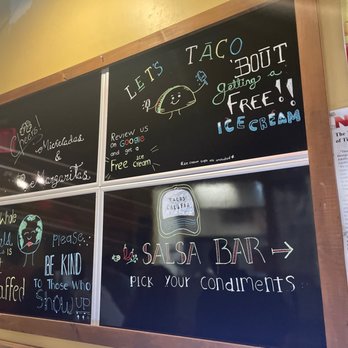 Cheers!
Micheladas
&
Margaritas
LET'S TACO 'BOUT
getting a
FREE!!
ICE CREAM
Review us
on Google
and get a
Free ice
Cream
whole
is
affed
Please
BE KIND
to Those who
Show up
SALSA BAR →
PICK YOUR CONDIMENTS